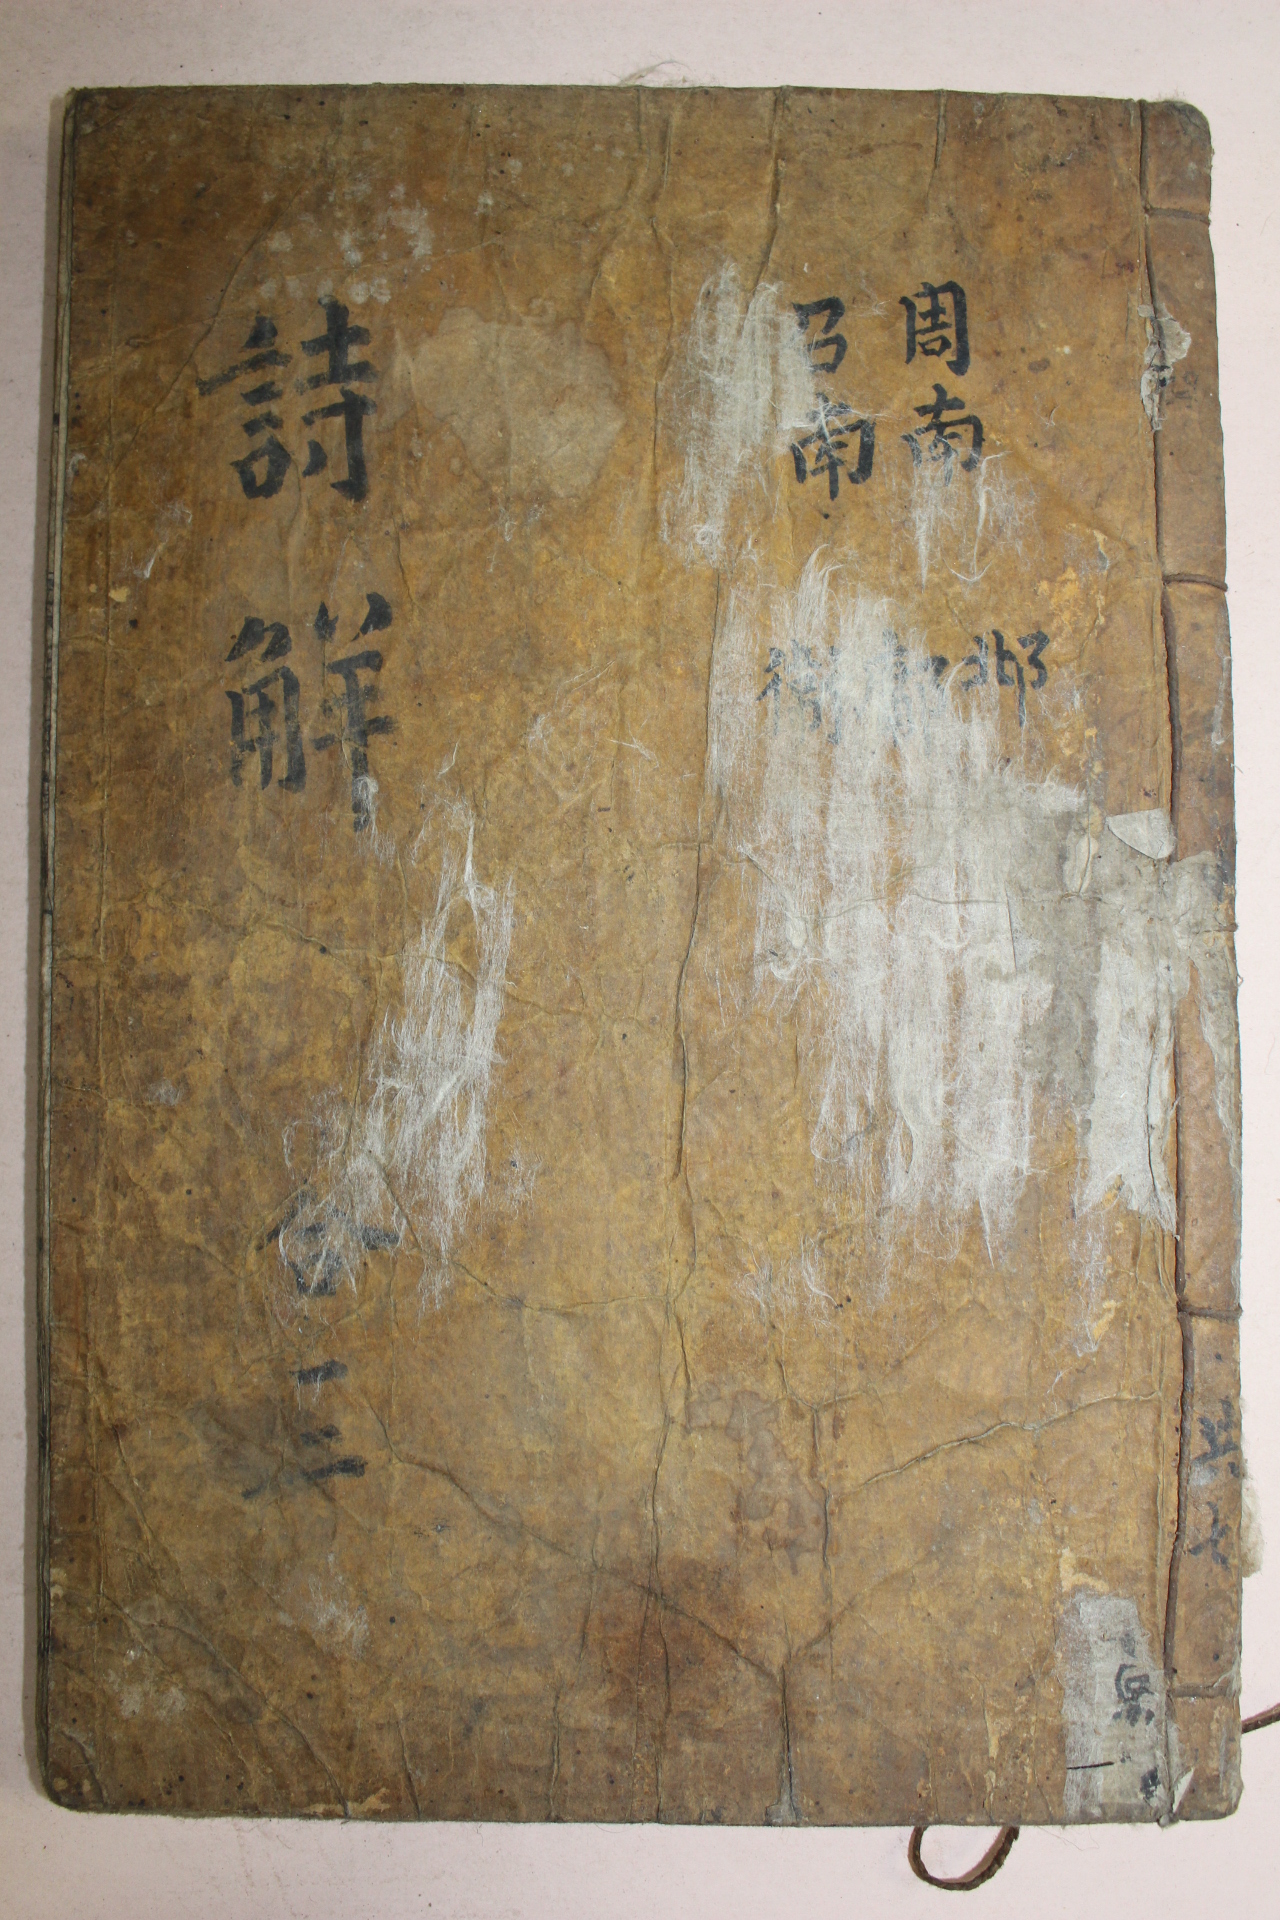 周南
召南
邶鄘衛
詩解 合一二
共七